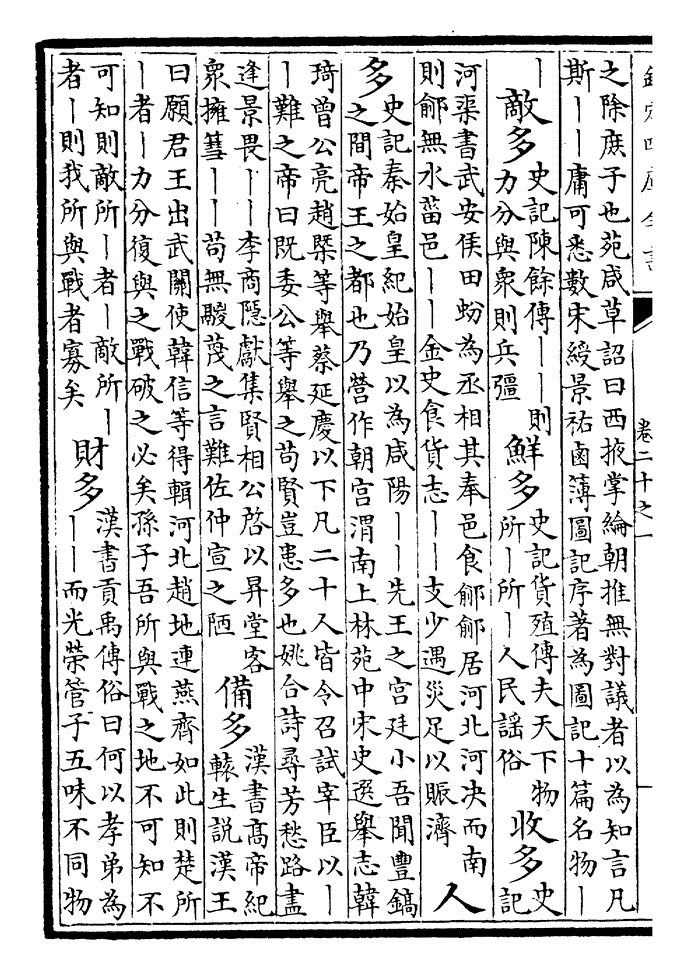 欽定四庫全書
卷二十之一
之除庶子也苑咸草詔曰西掖掌綸朝推無對議者以為知言凡
斯丨丨庸可悉數宋綬景祐鹵簿圖記序著為圖記十篇名物丨
丨
敵多
史記陳餘傳丨丨則
力分與衆則兵彊
鮮多
史記貨殖傳夫天下物
所丨所丨人民謡俗
收多
史
記
河渠書武安侯田蚡為丞相其奉邑食鄃鄃居河北河决而南
則鄃無水菑邑丨丨金史食貨志丨丨支少遇災足以賑濟
人
多
史記秦始皇紀始皇以為咸陽丨丨先王之宫廷小吾聞豐鎬
之間帝王之都也乃營作朝宫渭南上林苑中宋史選舉志韓
琦曾公亮趙槩等舉蔡延慶以下凡二十人皆令召試宰臣以丨
丨難之帝曰既委公等舉之茍賢豈患多也姚合詩尋芳愁路盡
逢景畏丨丨李商隱獻集賢相公啓以昇堂客
衆擁篲丨丨茍無駿茂之言難佐仲宣之陋
備多
漢書髙帝紀
轅生説漢王
曰願君王出武關使韓信等得輯河北趙地連燕齊如此則楚所
丨者丨力分復與之戰破之必矣孫子吾所與戰之地不可知不
可知則敵所丨者丨敵所丨
者丨則我所與戰者寡矣
財多
漢書貢禹傳俗曰何以孝弟為
丨丨而光榮管子五味不同物